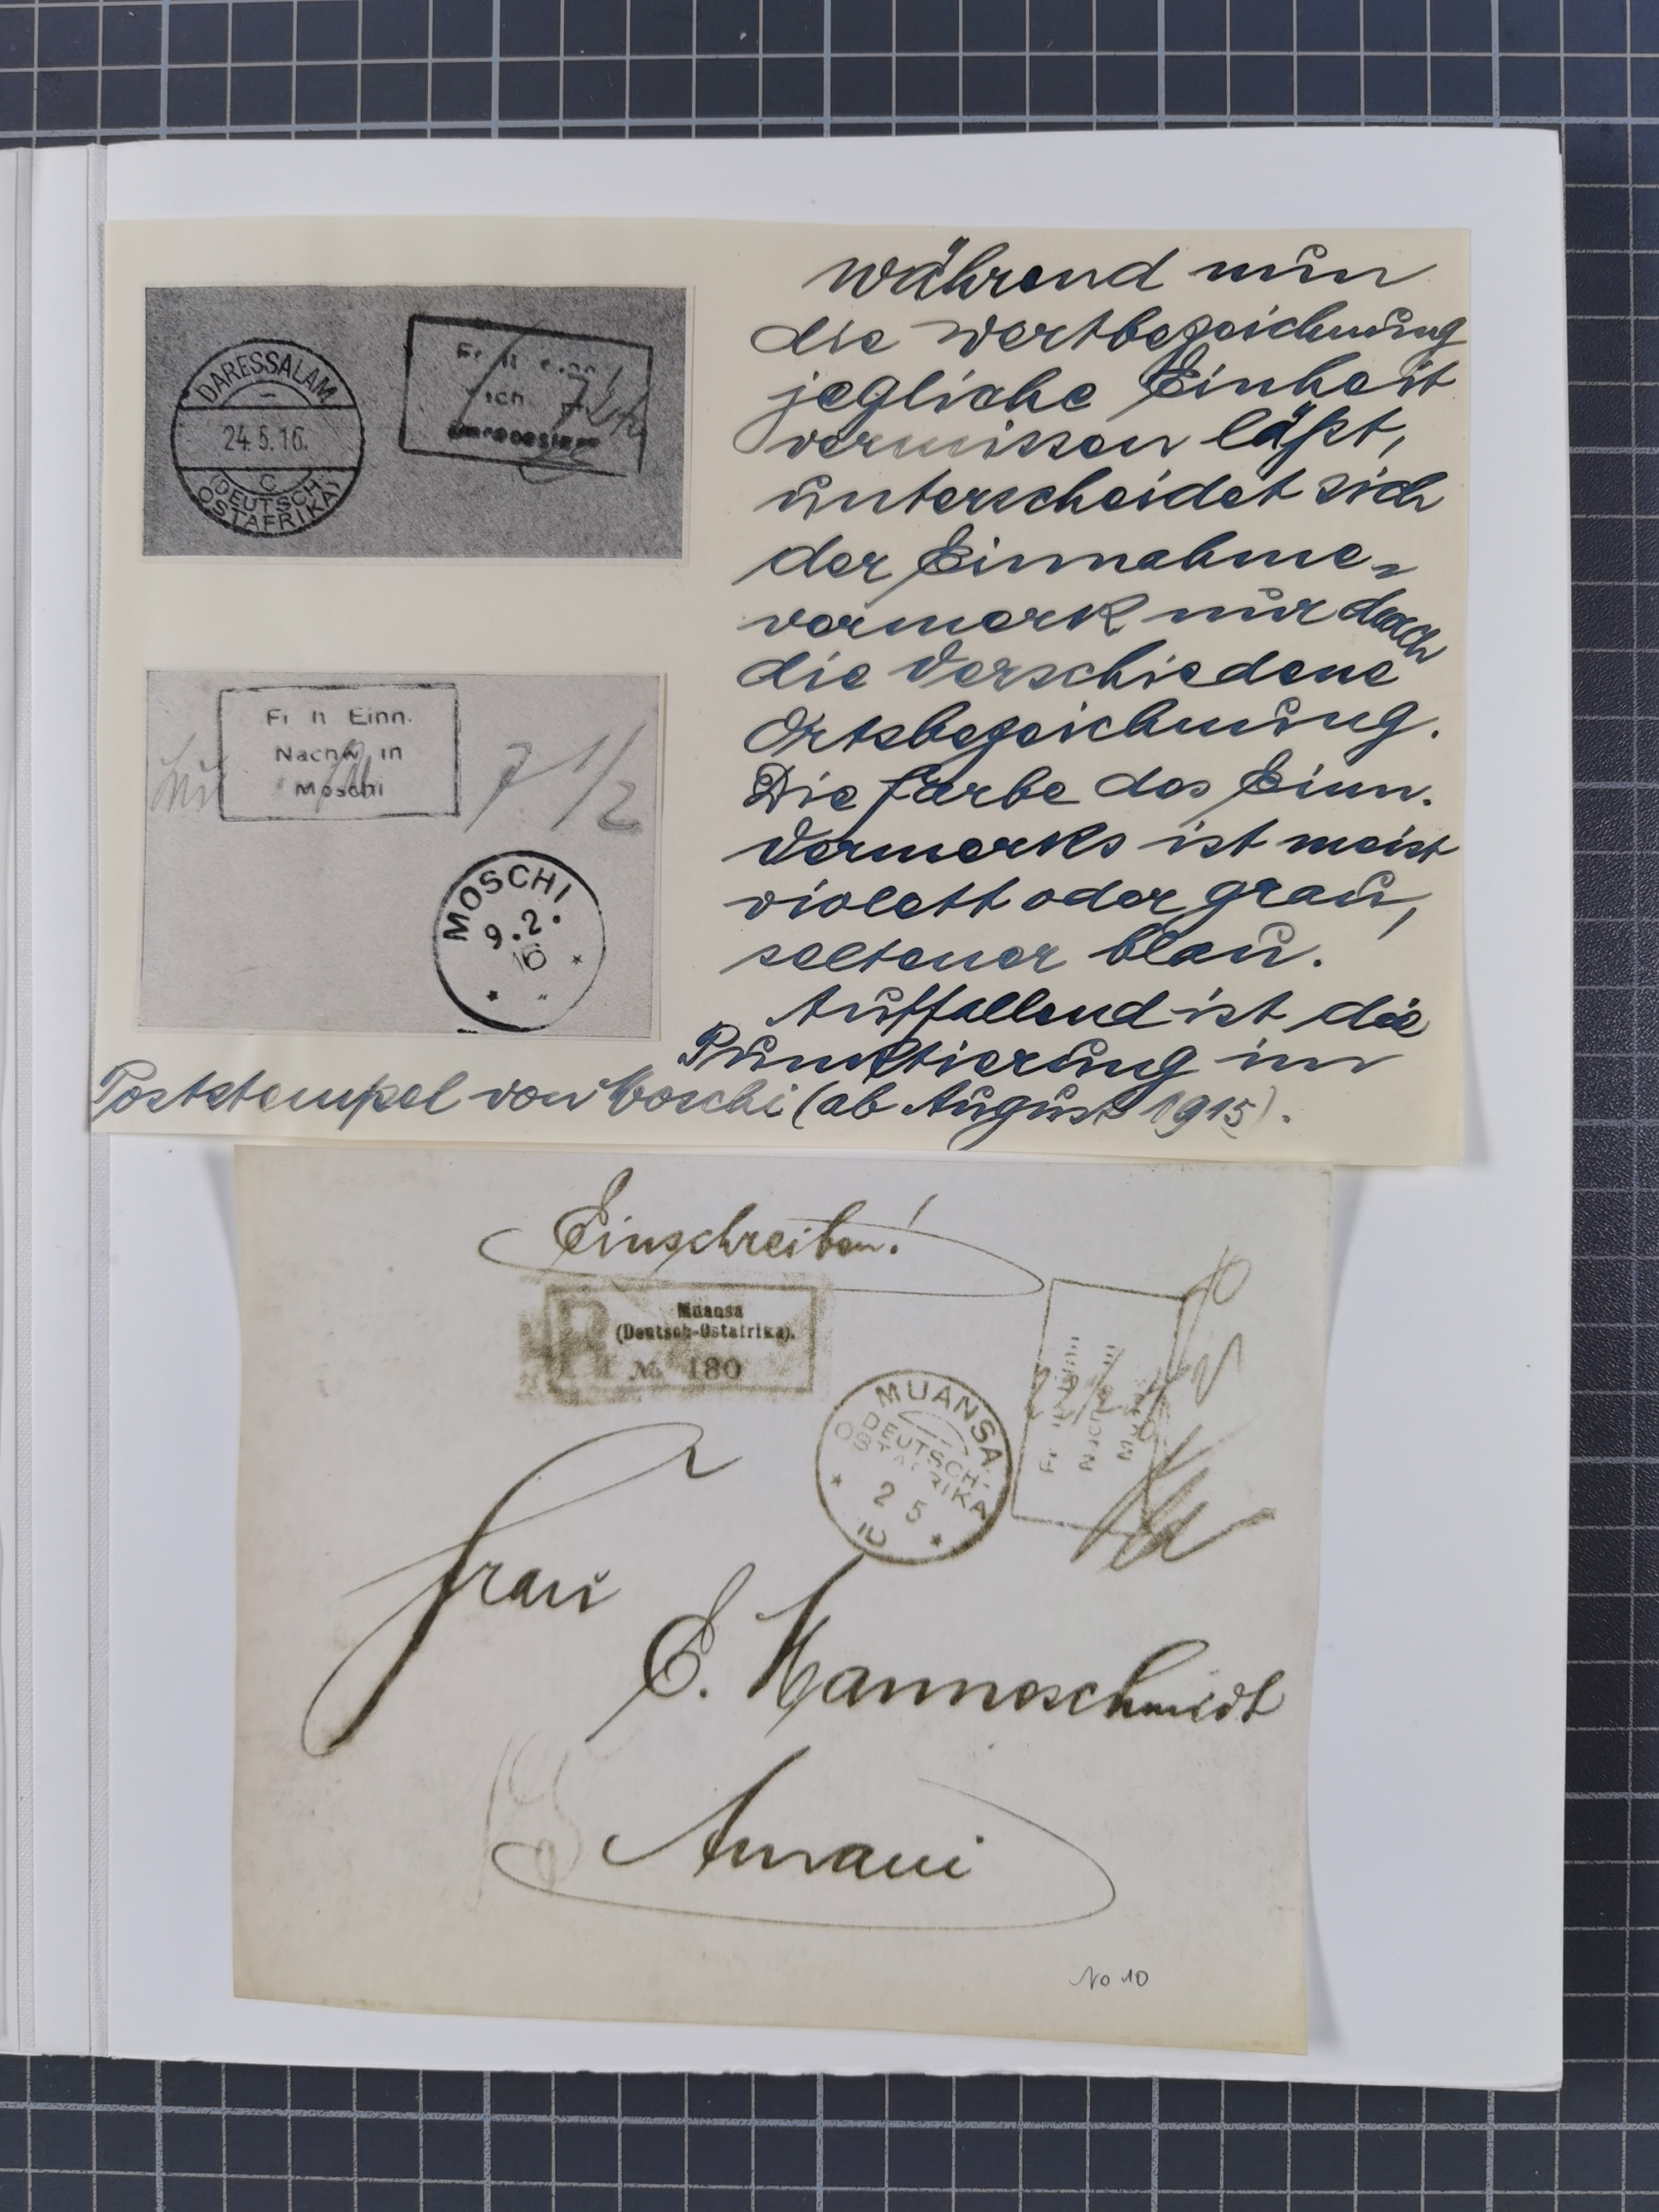 während nun
die Wertbezeichnung
jegliche Einheit
vermissen läßt,
unterscheidet sich
der Einnahme-
vermerk nur durch
die verschiedene
Ortsbezeichnung.
Die Farbe des Einn.
Vermerks ist meist
violett oder grau,
seltener blau.
Auffallend ist die
Punktierung im
Poststempel von Moschi (ab August 1915).
DARESSALAM
24.5.16.
C
(DEUTSCH-
OSTAFRIKA)
Fr. lt. Einn.
Nachw. in
Moschi
7 1/2
MOSCHI
9.2.
16
Einschreiben!
R
Muansa
(Deutsch-Ostafrika).
№ 180
MUANSA
DEUTSCH-
OSTAFRIKA
2 5
Fr.
Nachw. in
Frau
E. Hanneschmidt
Amani
No 10